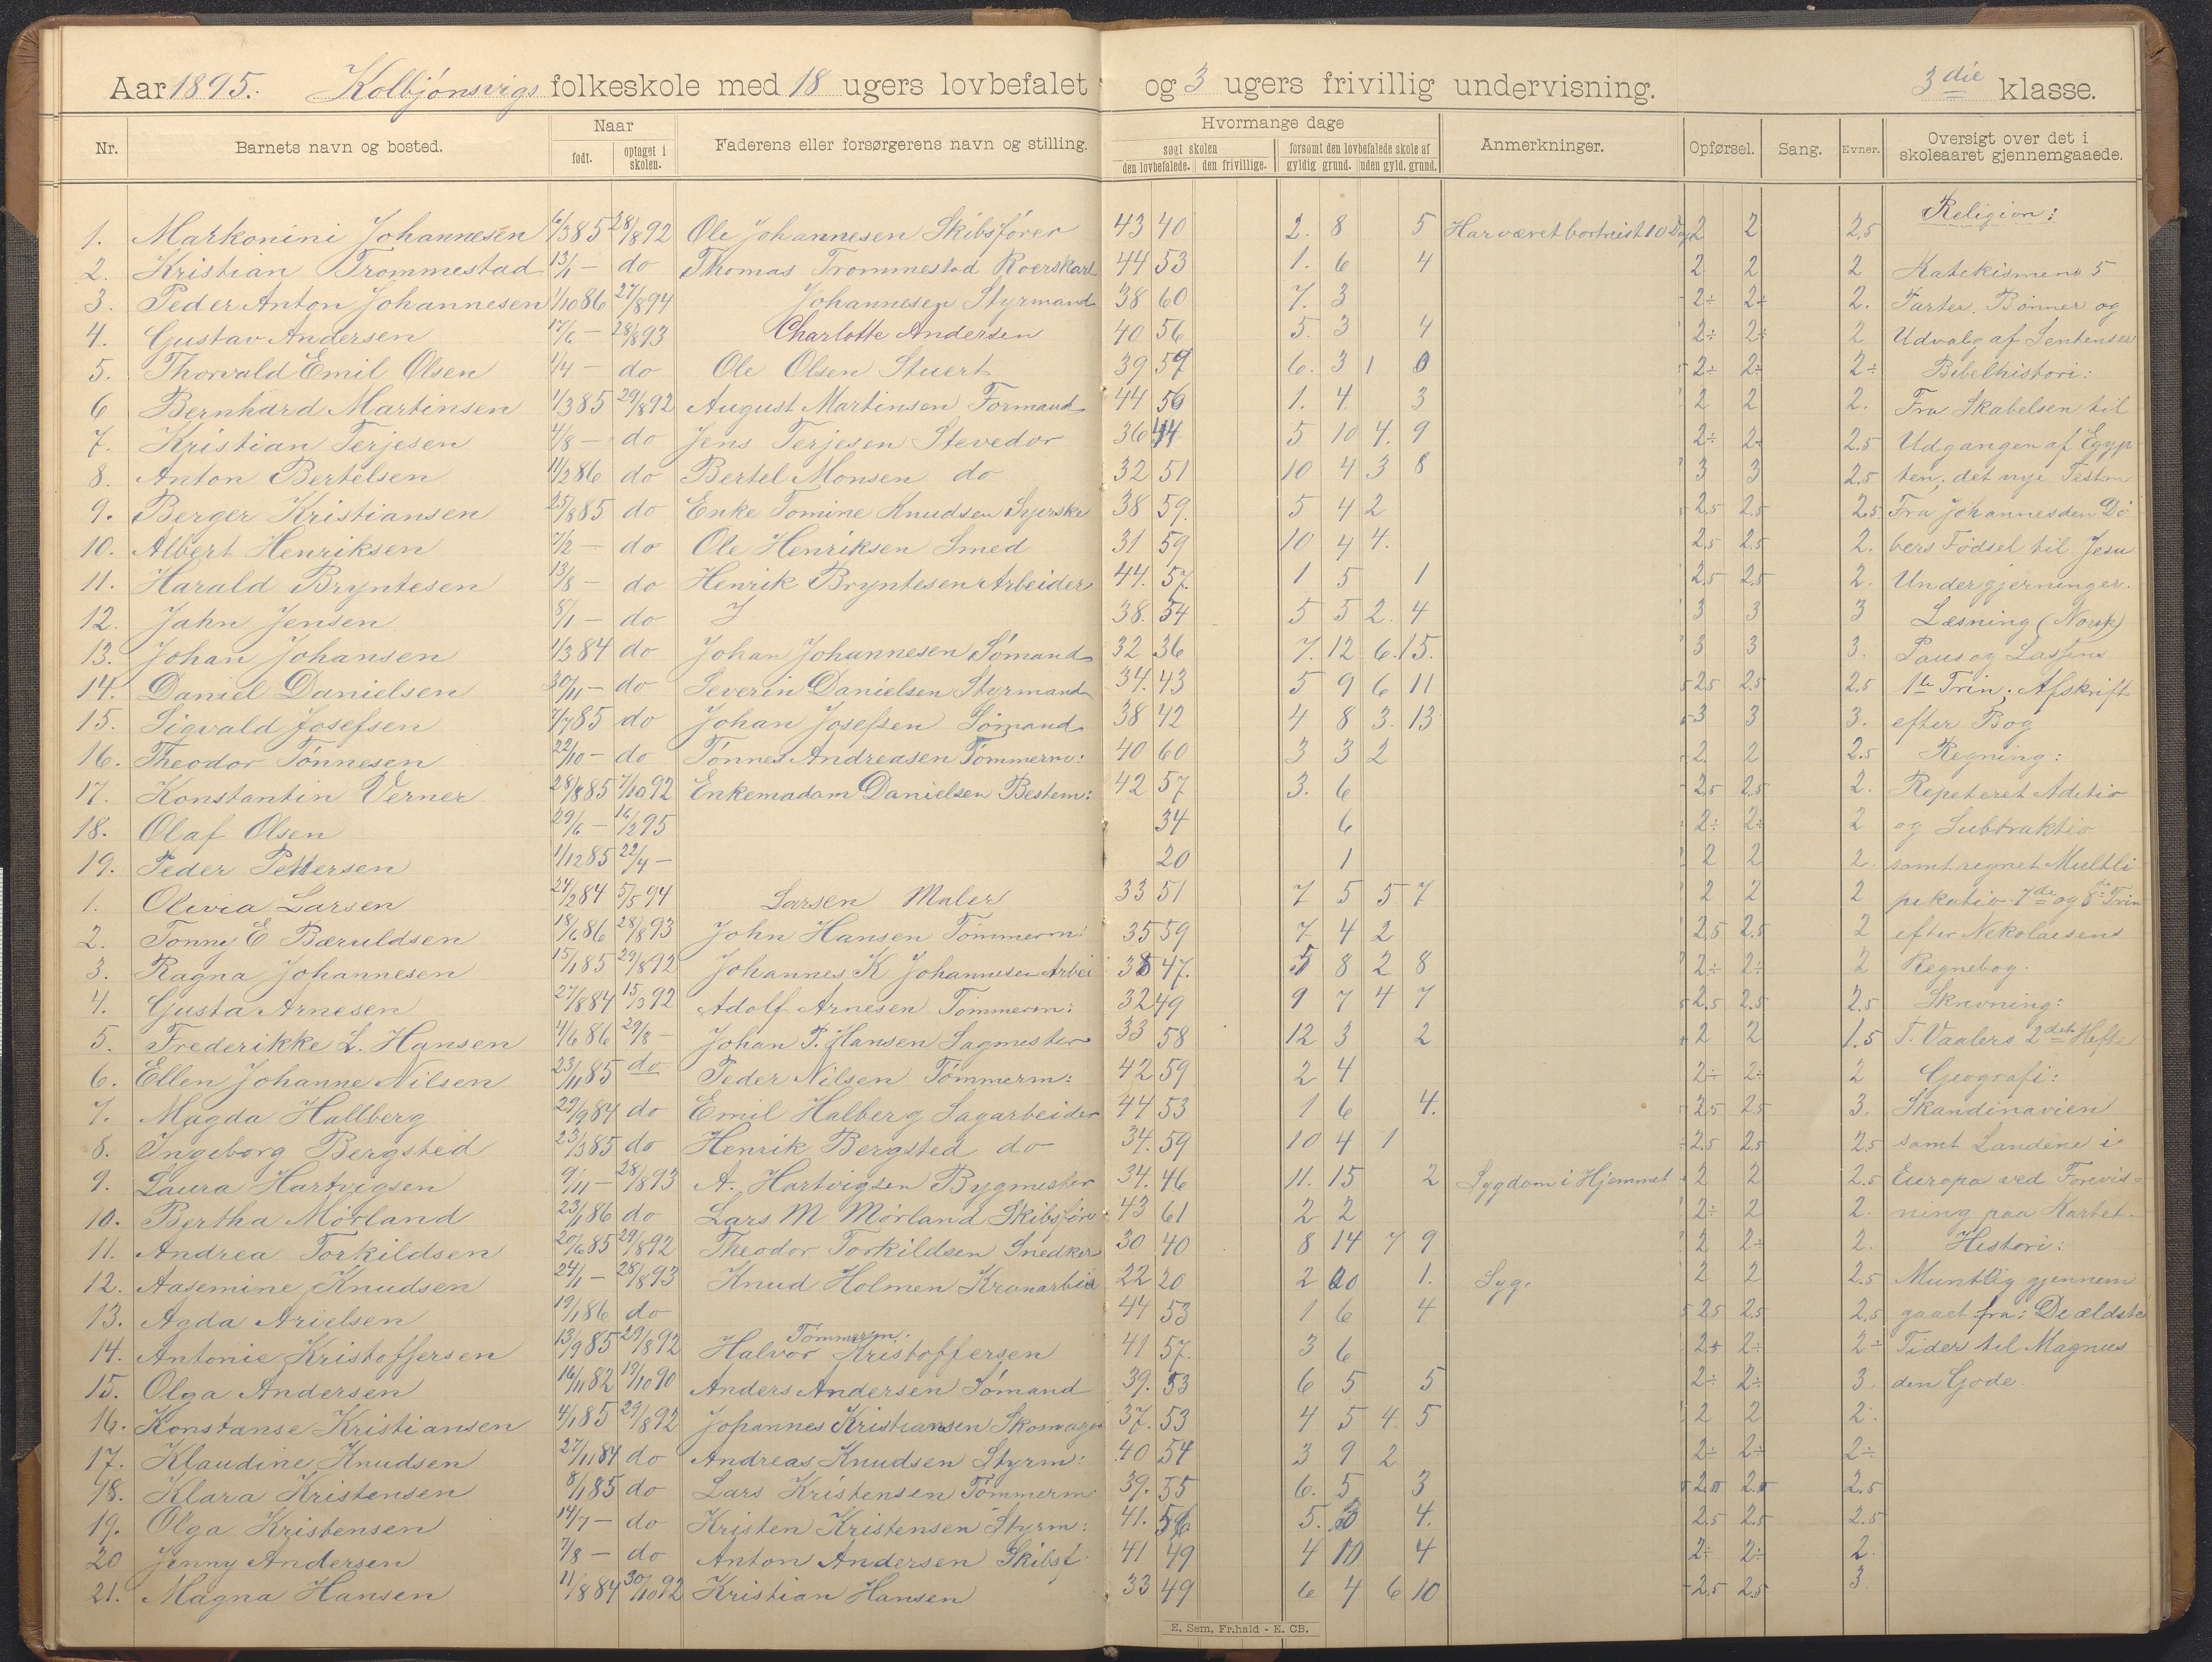 Aar 1895. Kolbjønsvigs folkeskole med 18 ugers lovbefalet og 3 ugers frivillig undervisning. 3die klasse.
Nr. Barnets navn og bosted. Naar født. optaget i skolen. Faderens eller forsørgerens navn og stilling. Hvormange dage søgt skolen den lovbefalede. den frivillige. forsømt den lovbefalede skole af gyldig grund. uden gyld. grund. Anmerkninger. Opførsel. Sang. Evner. Oversigt over det i skoleaaret gjennemgaaede.
Religion:
1. Markonini Johannesen 6/3 85 28/8 92 Ole Johannesen Skibsfører 43 40 2. 8 5 Har været bortreist 10 Dag 2 2 2.5
2. Kristian Trommestad 13/1 - do Thomas Trommestad Roerskarl 44 53 1. 6 4 2 2 2 Katekismens 5
3. Peder Anton Johannesen 1/10 86 27/8 94 Johannesen Styrmand 38 60 7. 3 2÷ 2÷ 2. Parter. Bønner og
4. Gustav Andersen 17/6 - 28/8 93 Charlotte Andersen 40 56 5. 3 4 2÷ 2÷ 2 Udvalg af Sentenser
5. Thorvald Emil Olsen 1/4 - do Ole Olsen Stuert 39 59 6. 3 1 0 2÷ 2÷ 2÷ Bibelhistori:
6 Bernhard Martinsen 1/3 85 29/8 92 August Martinsen Formand 44 56 1. 4. 3 2 2 2. Fra Skabelsen til
7. Kristian Terjesen 4/8 - do Jens Terjesen Stevedor 36 44 5 10 4. 9 2÷ 2÷ 2.5 Udgangen af Egyp
8. Anton Bertelsen 11/2 86 do Bertel Monsen do 32 51 10 4 3 8 3 3 2.5 ten; det nye Testm
9. Berger Kristiansen 25/8 85 do Enke Tomine Knudsen Syerske 38 59. 5 4 2 2.5 2.5 2.5 Fra Johannes den Dø
10. Albert Henriksen 7/2 - do Ole Henriksen Smed 31 59 10 4 4. 2.5 2.5 2. bers Fødsel til Jesu
11. Harald Bryntesen 13/8 - do Henrik Bryntesen Arbeider 44. 57. 1 5 1 2.5 2.5 2. Undergjerninger.
12. Jahn Jensen 8/1 - do J 38. 54 5 5 2. 4 3 3 3 Læsning (Norsk)
13. Johan Johansen 1/3 84 do Johan Johannesen Sømand 32 36 7. 12 6. 15. 3 3 3. Paus og Lassens
14. Daniel Danielsen 30/11 - do Severin Danielsen Styrmand 34. 43 5 9 6 11 2.5 2.5 2.5 1te Trin; Afskrift
15. Sigvald Josefsen 7/7 85 do Johan Josefsen Sømand 38 42 4 8 3. 13 3 3 3. efter Bog
16. Theodor Tønnesen 22/10 - do Tønnes Andreasen Tømmerm: 40 60 3 3 2 2. 2 2.5 Regning:
17. Konstantin Verner 28/8 85 7/10 92 Enkemadam Danielsen Bestem: 42 57 3. 6 2.5 2.5 2. Repeteret Aditio
18. Olaf Olsen 29/6 - 16/2 95 34 6 2÷ 2÷ 2 og Subtraktio
19. Peder Pettersen 1/12 85 22/4 - 20 1 2 2 2. samt regnet Multli
1. Olivia Larsen 24/2 84 5/5 94 Larsen Maler 33 51 7 5 5 7 2 2 2 pikatio 7de og 8de Trin
2. Tonny E Bæruldsen 18/6 86 28/8 93 John Hansen Tømmerm: 35 59 7 4 2 2.5 2.5 2 efter Nekolaisens
3. Ragna Johannesen 15/1 85 29/8 92 Johannes K Johannesen Arbei 38 47. 5 8 2 8 2÷ 2÷ 2 Regnebog.
4. Gusta Arnesen 27/8 84 15/3 92 Adolf Arnesen Tømmerm: 32 49 9 7 4 7 2.5 2.5 2.5 Skrivning:
5. Frederikke L. Hansen 4/6 86 29/8 - Johan P. Hansen Sagmester 33 58 12 3 2 2 2 1.5 T. Vaalers 2det Hefte
6. Ellen Johanne Nilsen 23/11 85 do Peder Nilsen Tømmerm: 42 59 2 4 2÷ 2÷ 2 Geografi:
7. Magda Hallberg 29/9 84 do Emil Halberg Sagarbeider 44 53 1 6 4. 2.5 2.5 3. Skandinavien
8. Ingeborg Bergsted 23/3 85 do Henrik Bergsted do 34. 59 10 4 1 2.5 2.5 2.5 samt Landene i
9. Laura Hartvigsen 9/11 - 28/8 93 A. Hartvigsen Bygmester 34. 46 11. 15 2 Sygdom i Hjemmet 2 2 2.5 Europa ved Forevis-
10. Bertha Mørland 23/1 86 do Lars M Mørland Skibsføre 43 61 2 2 2÷ 2 2. ning paa Kartet.
11. Andrea Torkildsen 20/6 85 29/8 92 Theodor Torkildsen Snedker 30 40 8 14 7 9 2 2÷ 2. Histori:
12. Aasemine Knudsen 24/1 - 28/8 93 Knud Holmen Kranarbid 22 20 2 20 1. Syg. 2 2 2.5 Muntlig gjennem
13. Agda Arielsen 19/1 86 do 44 53 1 6 4 2.5 2.5 2.5 gaaet fra: De ældste
14. Antonie Kristoffersen 13/9 85 29/8 92 Halvor Kristoffersen Tømmerm. 41 57. 3 6 2÷ 2÷ 2÷ Tider til Magnus
15. Olga Andersen 16/11 82 19/10 90 Anders Andersen Sømand 39. 53 6 5 5 2÷ 2÷ 3. den Gode.
16. Konstanse Kristiansen 4/1 85 29/8 92 Johannes Kristiansen Skomager 37. 53 4 5 4. 5 2 2 2.
17. Klaudine Knudsen 27/11 84 do Andreas Knudsen Styrm: 40 54 3 9 2 2÷ 2÷ 2÷
18. Klara Kristensen 8/1 85 do Lars Kristensen Tømmerm 39. 55 6. 5 3 2.5 2.5 2.5
19. Olga Kristensen 14/7 - do Kristen Kristensen Styrm: 41. 56 5. 3 4. 2.5 2.5 2.5
20 Jenny Andersen 7/8 - do Anton Andersen Skibsf. 41 49 4 10 4 2÷ 2÷ 2.
21. Magna Hansen 11/8 84 30/10 92 Kristian Hansen 33 49 6 4 6 10 2.5 2.5 3
E. Sem, Fr.hald - E. CB.